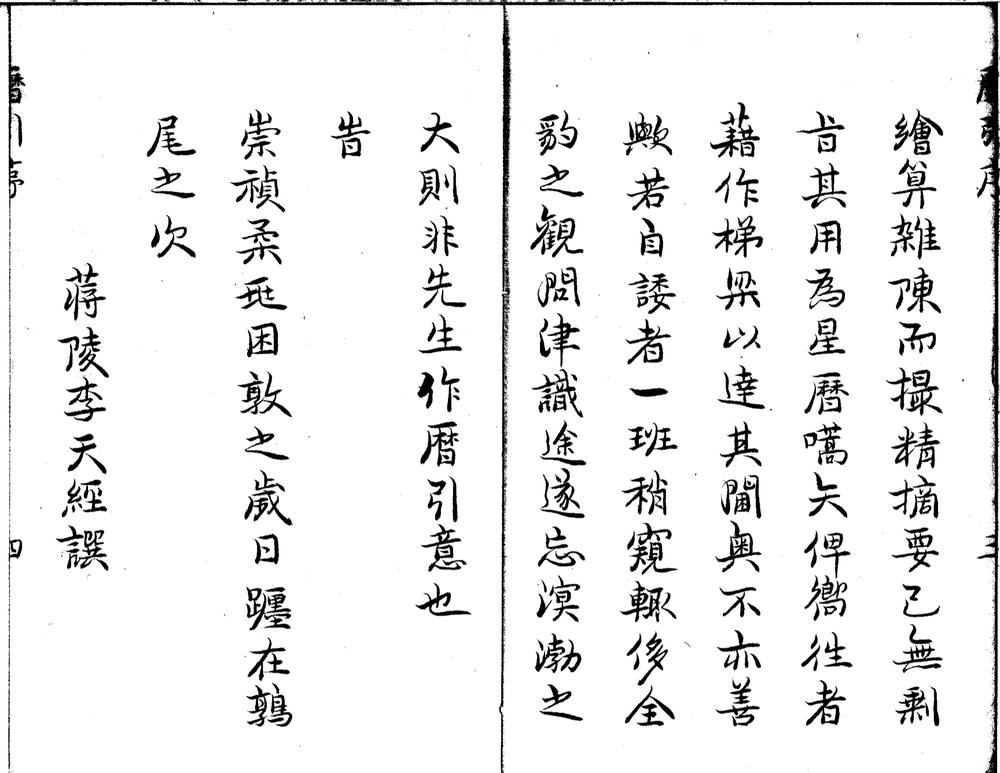 繪算雜陳而撮精摘要已無剩
旨其用為星暦嚆矢俾嚮徃者
藉作梯梁以達其閫奥不亦善
歟若自諉者一班稍窺輒侈全
豹之觀問津識途遂忘溟渤之
大則非先生作暦引意也
旹
崇禎柔兆困敦之歲日躔在鶉
尾之次
蔣陵李天經譔
四